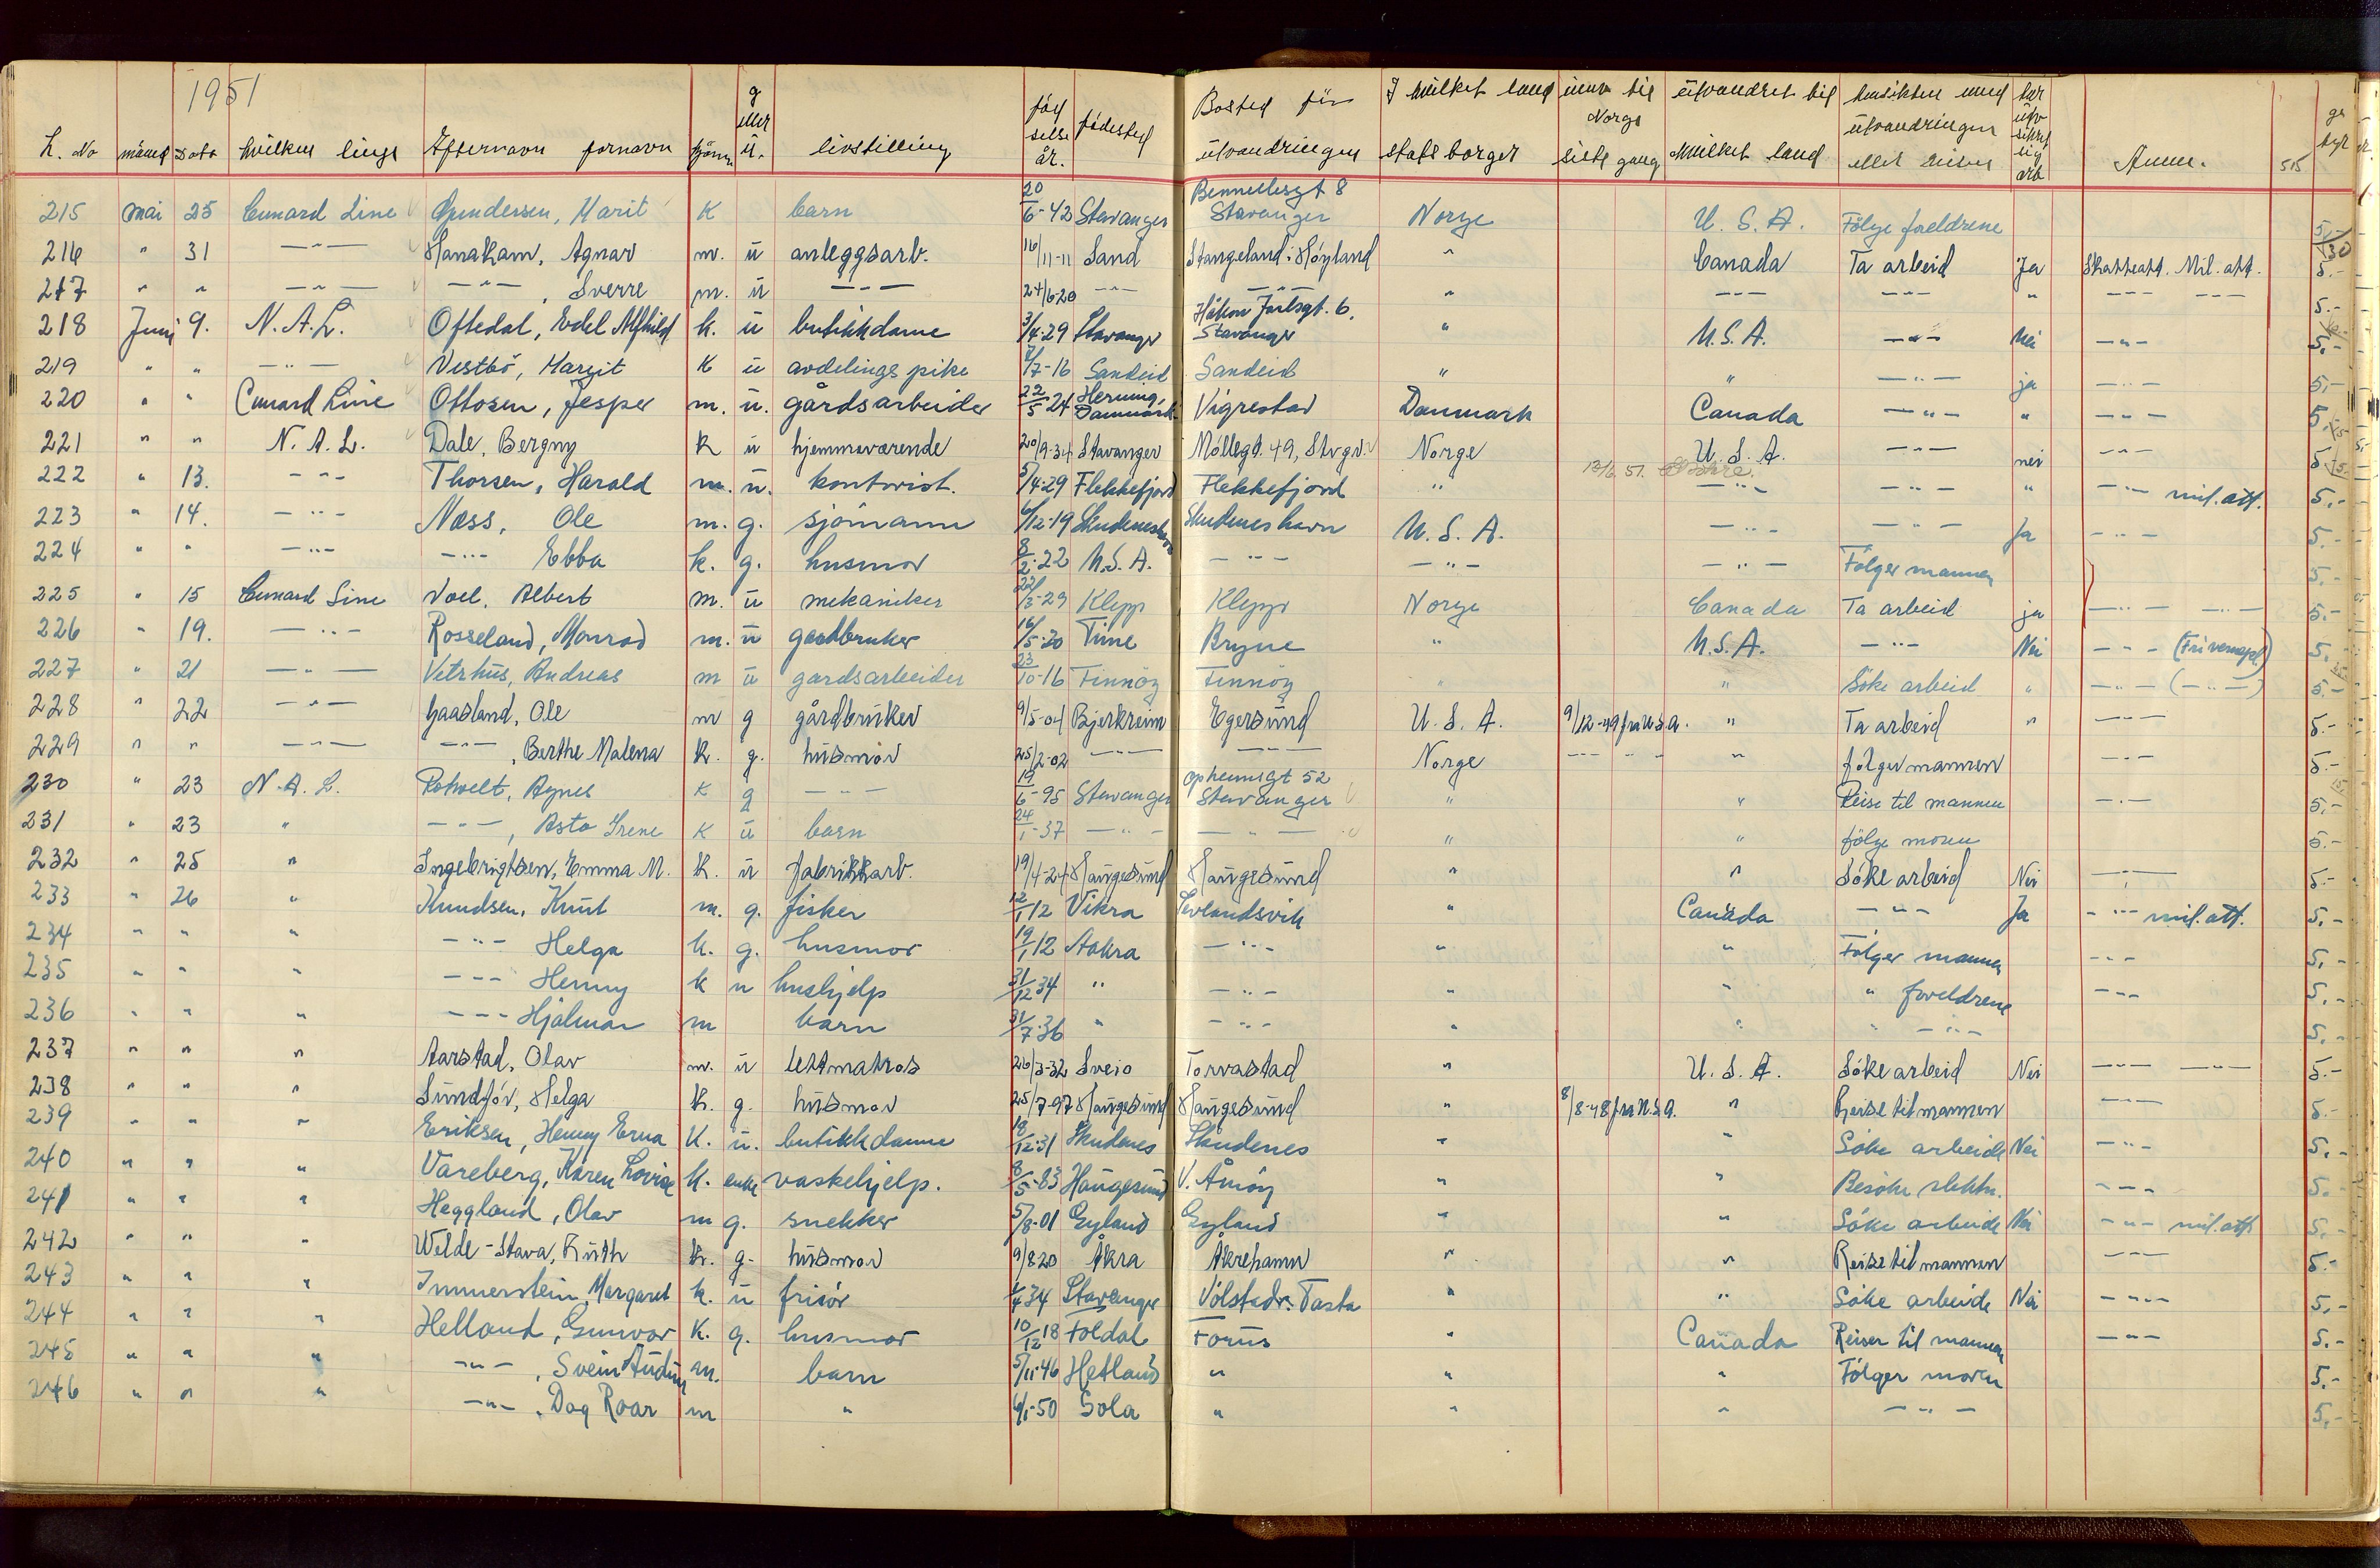 1951
L. No måned dato hvilken linje Efternavn fornavn kjönn g eller ü. livstilling fødselsår. fødested Bosted för ütvandringen I hvilket land statsborger innv til Norge siste gang ütvandret til hvilket land hensikten med ütvandringen eller reisen Anm. 515
215 mai 25 Cunard Line Gundersen, Marit K barn 20/6-42 Stavanger Stavanger Norge U.S.A. Følge foreldrene 5,-
216 " 31 —"— Hanakam, Agnar m. ü anleggsarb. 16/11-11 Sand Stangeland i Høyland " Canada Ta arbeid Ja Skatteatt. Mil. att. 5.-
217 " " —"— —"—, Sverre m. ü —"— 24/6-20 —"— —"— " —"— —"— " —"— —"— 5.-
218 Juni 9. N.A.L. Oftedal, Edel Alfhild k. ü butikkdame 3/4-29 Stavanger Håkon Jarlsgt. 6, Stavanger " U.S.A. —"— Nei —"— 5,-
219 " " —"— Vestbö, Margit K ü avdelingspike 7/7-16 Sandeid Sandeid " " —"— ja —"— 5,-
220 " " Cunard Line Ottosen, Jesper m. ü. gårdsarbeider 22/5 24 Herning, Danmark Vigrestad Danmark Canada —"— " —"— 5,-
221 " " N.A.L. Dale, Bergny K ü hjemmeværende 20/9-34 Stavanger Møllegt. 49, Stvgr. Norge U.S.A. —"— nei —"— 5
222 " 13. —"— Thorsen, Harald m. ü. kontorist. 5/4-29 Flekkefjord Flekkefjord " 13/6 51. —"— —"— " —"— mil. att. 5,-
223 " 14. —"— Næss, Ole m. g. sjömann 6/12-19 Skudeneshavn Skudeneshavn U.S.A. —"— —"— Ja —"— 5.-
224 " " —"— —"— Ebba k. g. husmor 8/2-22 U.S.A. —"— —"— —"— Følger mannen 5,-
225 " 15 Cunard Line Voll, Albert m. ü mekaniker 22/3-29 Klepp Klepp Norge Canada Ta arbeid ja —"— —"— 5.-
226 " 19. —"— Rosseland, Monrad m. ü gardbruker 16/5-20 Time Bryne " U.S.A. —"— Nei —"— (Fri vernepl.) 5,
227 " 21 —"— Vetrhus, Andreas m ü gardsarbeider 23/10-16 Finnöy Finnöy " " Söke arbeid " —"— (—"—) 5-
228 " 22 —"— Gaasland, Ole m g gårdbruker 9/5-04 Bjerkreim Egersund U.S.A. 9/12-49 fra U.S.A. " Ta arbeid " —"— 5.-
229 " " —"— —"—, Berthe Malena K. g. husmor 25/2-02 —"— —"— Norge —"— " følger mannen —"— 5.-
230 " 23 N.A.L. Rotvelt, Agnes K g —"— 19/6-95 Stavanger Stavanger " " Reise til mannen —"— 5,-
231 " 23 " —"—, Asta Irene K ü barn 24/1-37 —"— —"— " " følge moren 5.-
232 " 25 " Ingebrigtsen, Emma M. K. ü fabrikkarb. 19/4-24 Haugesund Haugesund " " Søke arbeid Nei —"— 5.-
233 " 26 " Knudsen, Knut m. g. fisker 12/1 12 Vikra Sevlandsvik " Canada —"— Ja —"— mil. att. 5,-
234 " " " —"— Helga k. g. husmor 19/1 12 Aakra —"— " " Følger mannen —"— 5,-
235 " " " —"— Henny k u hushjelp 31/12 34 " —"— " " " foreldrene —"— 5,-
236 " " " —"— Hjalmar m barn 31/7-36 " —"— " " " —"— 5,-
237 " " " Aarstad, Olav m. ü lettmatros 26/3-32 Sveio Torvastad " U.S.A. Søke arbeid Nei —"— —"— 5.-
238 " " " Sundför, Helga K. g. husmor 25/7-97 Haugesund Haugesund " 8/8-48 fra U.S.A. " Reise til mannen —"— 5-
239 " " " Eriksen, Henny Erna K. ü. butikkdame 18/12-31 Skudenes Skudenes " " Söke arbeide Nei —"— 5,-
240 " " " Våreberg, Karen Lovise K. enke vaskehjelp. 8/5-83 Haugesund V. Åmöy " " Besøke slektn. —"— 5.-
241 " " " Heggland, Olav m g. snekker 5/8-01 Gyland Gyland " " Söke arbeide Nei —"— mil. att 5,-
242 " " " Welde-Stava, Ruth K. g. husmor 9/8-20 Åkra Åkrehamn " " Reise til mannen —"— 5.-
243 " " " Immerstein, Margaret k. ü frisör 1/4 34 Stavanger Volstadv. Tasta " " Söke arbeide Nei —"— 5,-
244 " " " Helland, Gunvor K. g. husmor 10/12 18 Foldal Forus " Canada Reiser til mannen —"— 5.-
245 " " " —"—, Svein Audun m. barn 5/11-46 Hetland " " " Følger moren 5.-
246 " " " —"—, Dag Roar m " 6/1-50 Sola " " " —"— 5,-